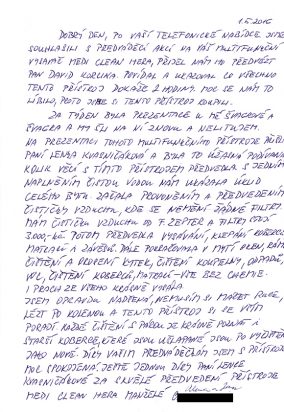 1.5.2016
DOBRÝ DEN, PO VAŠÍ TELEFONICKÉ NABÍDCE JSME
SOUHLASILI S PŘEDVÁDĚCÍ AKCÍ NA VÁŠ MULTIFUNKČNÍ
VYSAVAČ MEDI CLEAN HERA, PŘIJEL NÁM HO PŘEDVÉST
PAN DAVID KORUNKA. POVÍDAL A UKAZOVAL CO VŠECHNO
TENTO PŘÍSTROJ DOKÁŽE 2 HODINY. MOC SE NÁM TO
LÍBILO, PROTO JSME SI TENTO PŘÍSTROJ KOUPILI.
ZA TÝDEN BYLA PREZENTACE U MÉ ŠVAGROVÉ A
ŠVAGRA A MY JELI NA NÍ ZNOVU A NELITUJEM.
NA PREZENTACI TOHOTO MULTIFUNKČNÍHO PŘÍSTROJE PŘIJELA
PANÍ LENKA KVASNIČKOVÁ A BYLA TO ÚŽASNÁ PODÍVANÁ
KOLIK VĚCÍ S TÍMTO PŘÍSTROJEM PŘEDVEDLA S JEDNÍM
NAPLNĚNÍM ČISTOU VODOU NÁM UKÁZALA ÚKLID
CELÉHO BYTU. ZAČALA PROVONĚNÍM A PŘEDVEDENÍM
ČISTIČKY VZDUCHU, KDE SE NEMĚNÍ ŽÁDNÉ FILTRY
MÁM ČISTIČKU VZDUCHU OD F. ZEPTER A FILTRY STOJÍ
3000,-KČ. POTOM PŘEDVEDLA VYSÁVÁNÍ, KLEPÁNÍ KOBERCŮ
MATRACÍ A ZÁVĚSŮ. DÁLE POKRAČOVALA V MYTÍ OKEN, RÁMŮ
ČIŠTĚNÍ A VROCENÍ KYTEK, ČIŠTĚNÍ KOUPELNY, ODPADŮ,
WC, ČIŠTĚNÍ KOBERCŮ, MATRACÍ - VŠE BEZ CHEMIE.
I PRACH ZE VŠEHO KRÁSNĚ VYSÁLA
JSEM OPRAVDU NADŠENÁ, NEMUSÍM SI MÁČET RUCE,
LÉZT PO KOLENOU A TENTO PŘÍSTROJ SI SE VŠÍM
PORADÍ. KAŽDÉ ČIŠTĚNÍ S PÁROU JE KRÁSNĚ POZNAT I
STARŠÍ KOBERCE, KTERÉ JSOU UŠLAPANÉ JSOU PO VYČIŠTĚNÍ
JAKO NOVÉ. DÍKY VAŠIM PŘEDVÁDĚČKÁM JSEM S PŘÍSTROJEM
MOC SPOKOJENÁ. JEŠTĚ JEDNOU DÍKY PANÍ LENCE
KVASNIČKOVÉ ZA SKVĚLÉ PŘEDVEDENÍ PŘÍSTROJE
MEDI CLEAN HERA MANŽELÉ